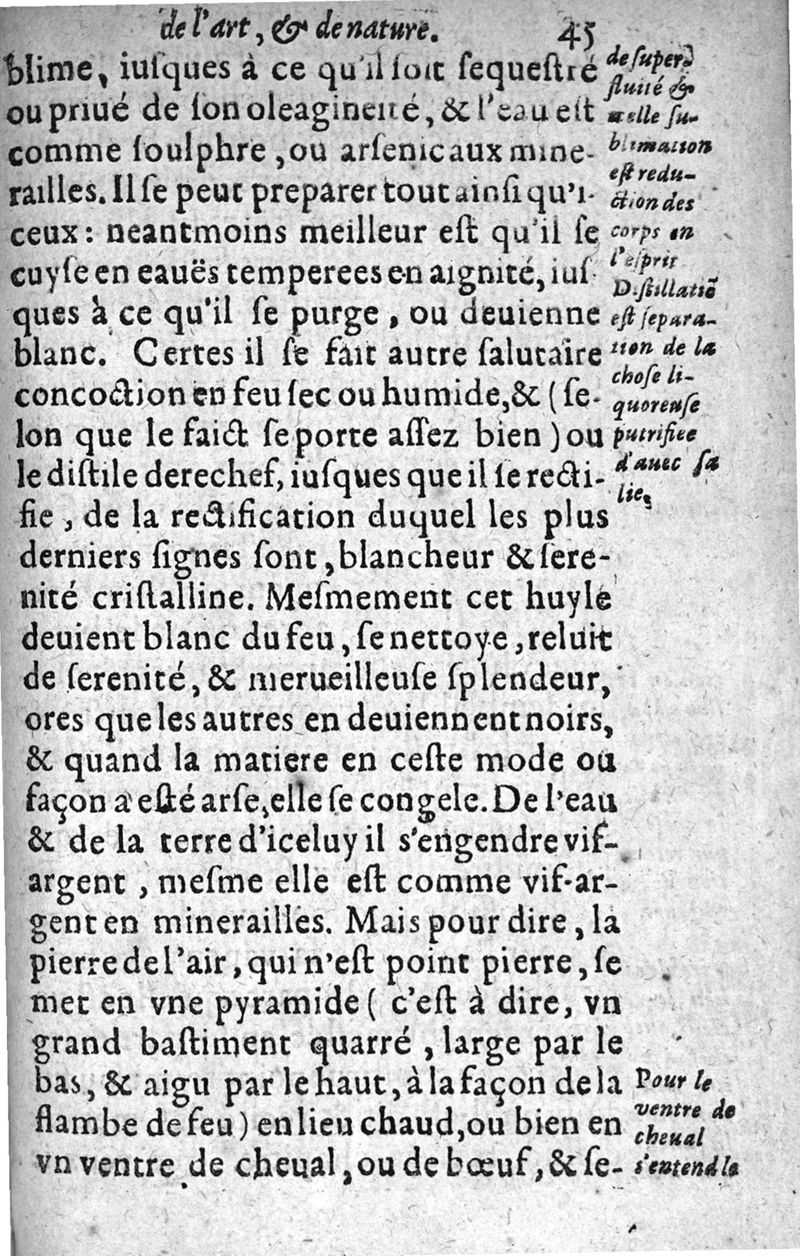 de l'art, & de nature. 45
blime, iuſques à ce qu'il ſoit ſequeſtré
ou priué de ſon oleagineité, & l'eau eſt
comme ſoulphre, ou arſenic aux mine-
railles. Il ſe peut preparer tout ainſi qu'i-
ceux: neantmoins meilleur eſt qu'il ſe
cuyſe en eauës temperees en aignité, iuſ-
ques à ce qu'il ſe purge, ou deuienne
blanc. Certes il ſe fait autre ſalutaire
concoction en feu ſec ou humide, & (ſe-
lon que le faict ſe porte aſſez bien) ou
le diſtile derechef, iuſques que il ſe recti-
fie, de la rectification duquel les plus
derniers ſignes ſont, blancheur & ſere-
nité criſtalline. Meſmement cet huyle
deuient blanc du feu, ſe nettoye, reluit
de ſerenité, & merueilleuſe ſplendeur,
ores que les autres en deuiennent noirs,
& quand la matiere en ceſte mode ou
façon a eſté arſe, elle ſe congele. De l'eau
& de la terre d'iceluy il s'engendre vif-
argent, meſme elle eſt comme vif-ar-
gent en minerailles. Mais pour dire, la
pierre de l'air, qui n'eſt point pierre, ſe
met en vne pyramide (c'eſt à dire, vn
grand baſtiment quarré, large par le
bas, & aigu par le haut, à la façon de la
flambe de feu) en lieu chaud, ou bien en
vn ventre de cheual, ou de bœuf, & ſe-
de ſuper
fluité &
elle ſu-
blimation
eſt redu-
ction des
corps en
l'eſprit
Diſtillatiõ
eſt ſepara-
tion de la
choſe li-
quoreuſe
putrifiee
d'auec ſa
lie,
Pour le
ventre de
cheual
s'entend le